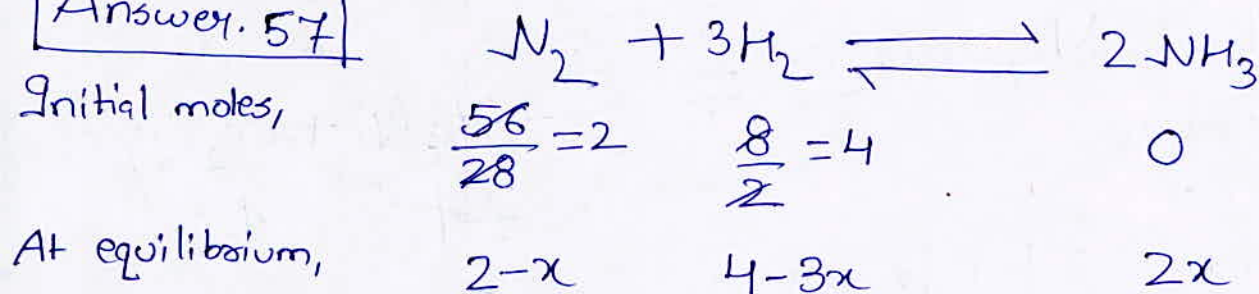 Answer. 57
N₂ + 3H₂ ⇌ 2NH₃
Initial moles, 56/28 = 2 8/2 = 4 0
At equilibrium, 2-x 4-3x 2x